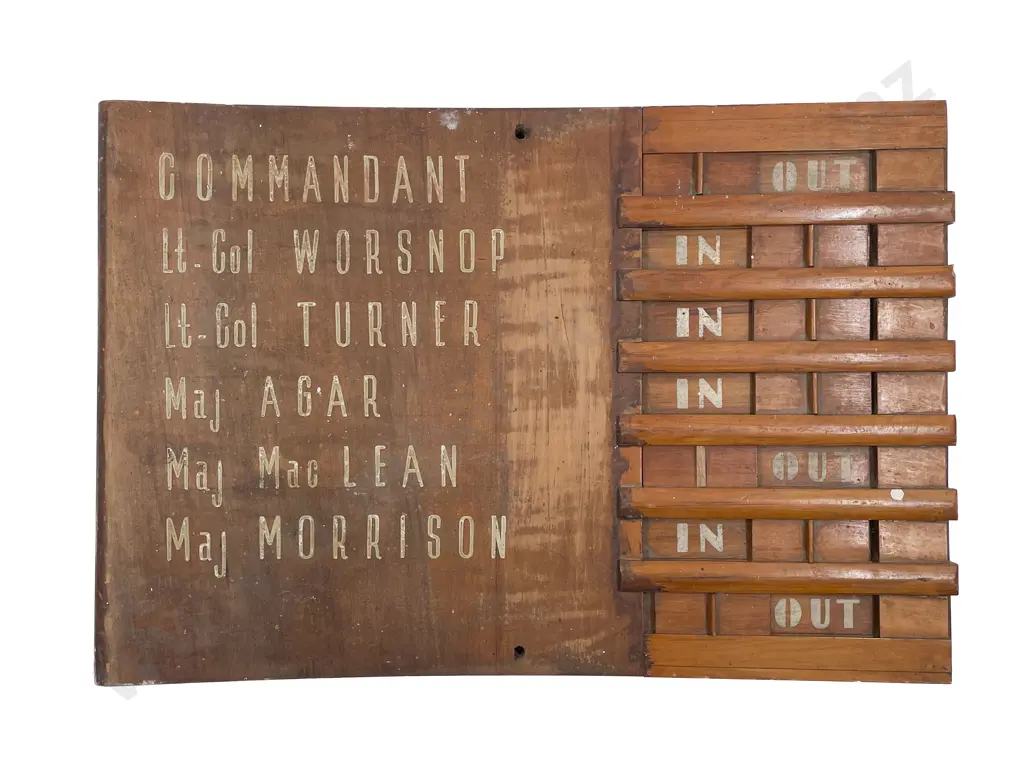 COMMANDANT OUT
Lt-Col WORSNOP IN
Lt-Col TURNER IN
Maj AGAR IN
Maj Mac LEAN OUT
Maj MORRISON IN
OUT